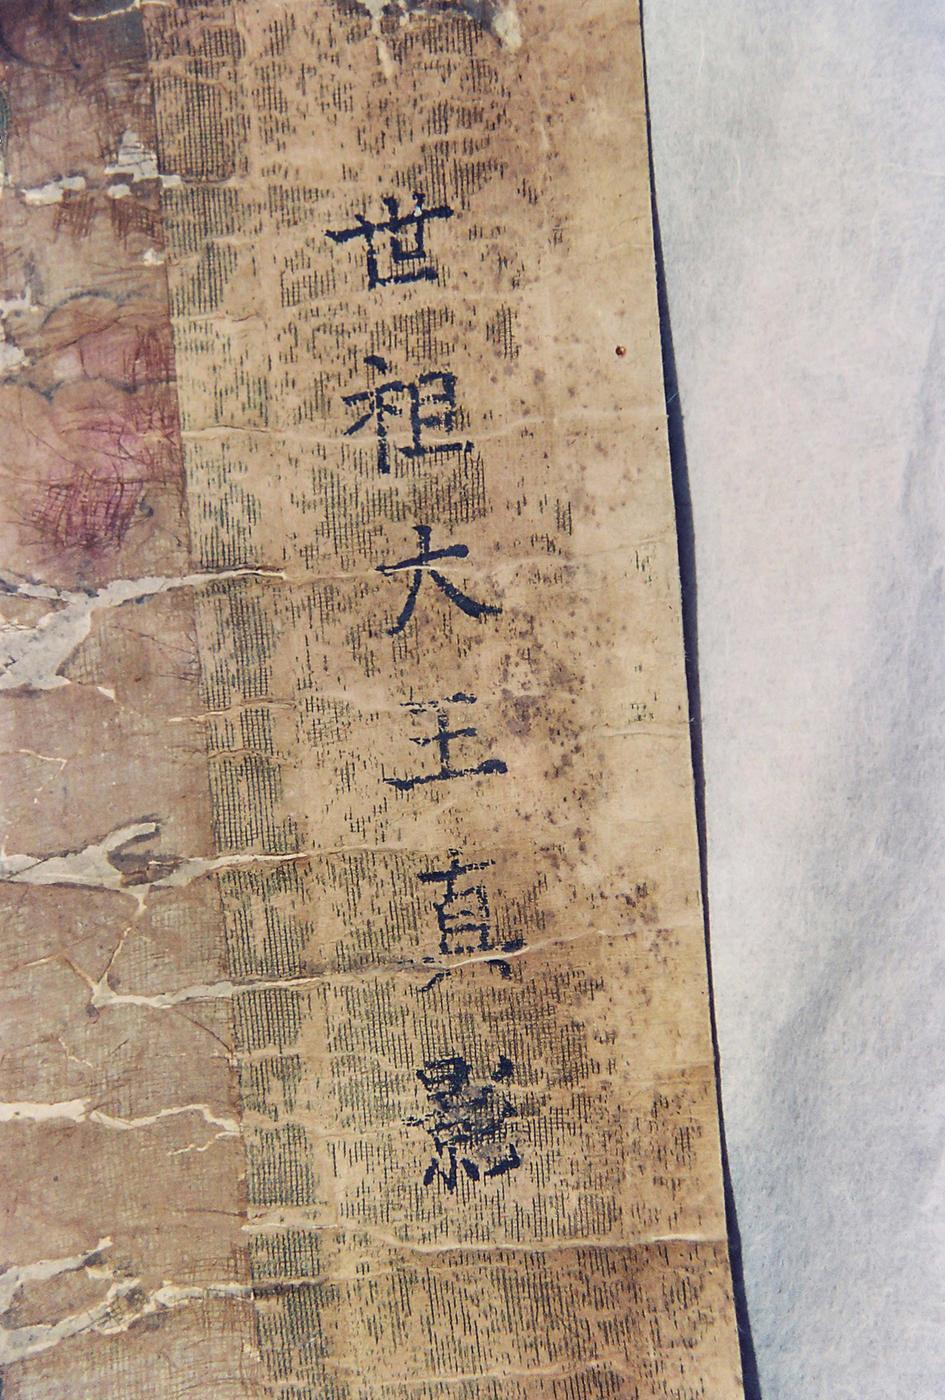 世祖大王真影